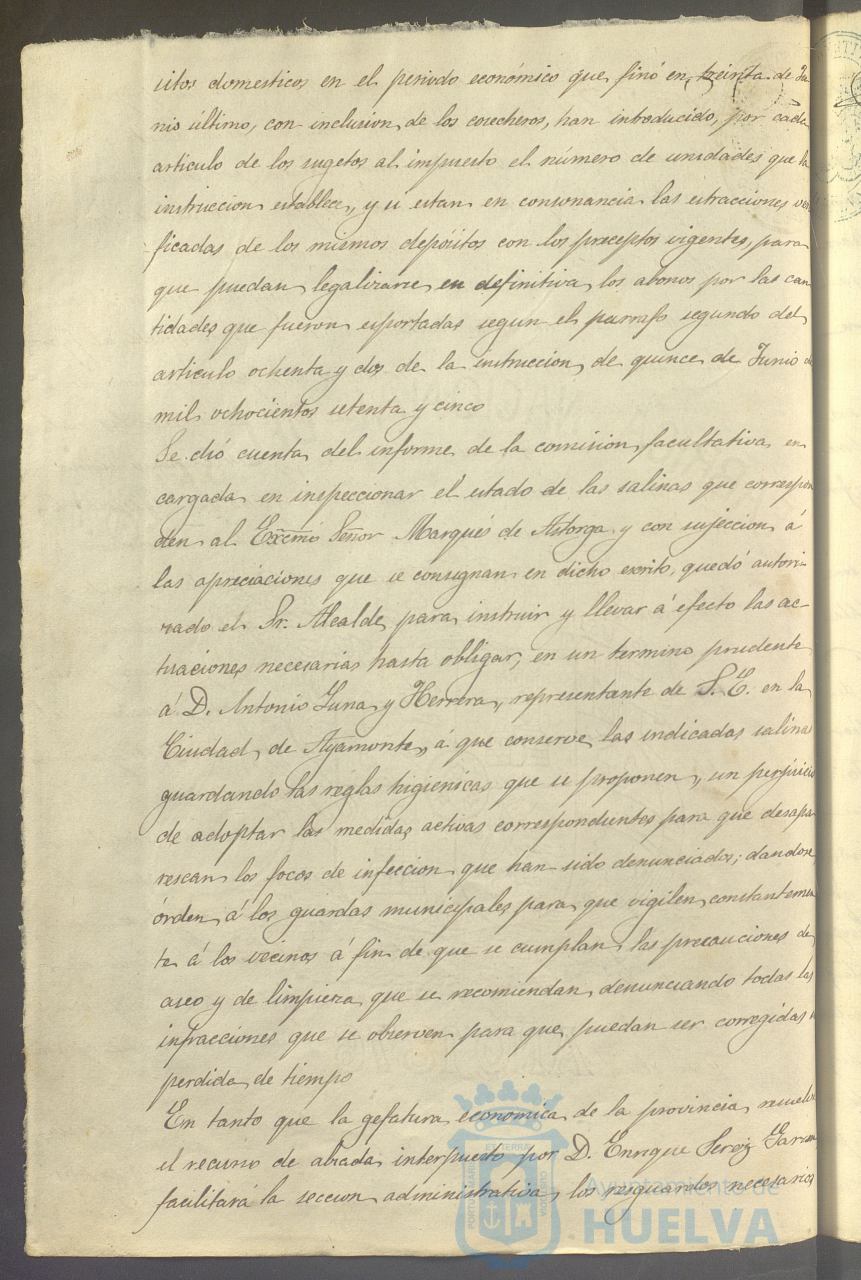 sitos domesticos en el periodo económico que finó en treinta de Ju
nio último, con inclusion de los cosecheros, han introducido, por cada
articulo de los sugetos al impuesto el número de unidades que la
instruccion establece, y si estan en consonancia las estracciones veri
ficadas de los mismos depósitos con los preceptos vigentes, para
que puedan legalizarse en definitiva los abonos por las can
tidades que fueron esportadas segun el parrafo segundo del
articulo ochenta y dos de la instruccion de quince de Junio de
mil ochocientos setenta y cinco
Se dió cuenta del informe de la comision facultativa en
cargada en inspeccionar el estado de las salinas que correspon
den al Excmo Señor Marqués de Astorga y con sujeccion á
las apreciaciones que se consignan en dicho escrito, quedó autori-
zado el Sr. Alcalde para instruir y llevar á efecto las ac-
tuaciones necesarias hasta obligar, en un termino prudente
á D. Antonio Luna y Herrera, representante de S. E. en la
Ciudad de Ayamonte, á que conserve las indicadas salinas
guardando las reglas higienicas que se proponen, sin perjuicio
de adoptar las medidas activas correspondientes para que desapa
rescan los focos de infeccion que han sido denunciados; dandose
órden á los guardas municipales para que vigilen constantemen
te á los vecinos á fin de que se cumplan las precauciones de
aseo y de limpieza que se recomiendan, denunciando todas las
infracciones que se observen para que puedan ser corregidas
perdida de tiempo
En tanto que la gefatura económica de la provincia resuelve
el recurso de alzada interpuesto por D. Enrique
facilitará la seccion administrativa los resguardos necesarios
Ayuntamiento de
HUELVA